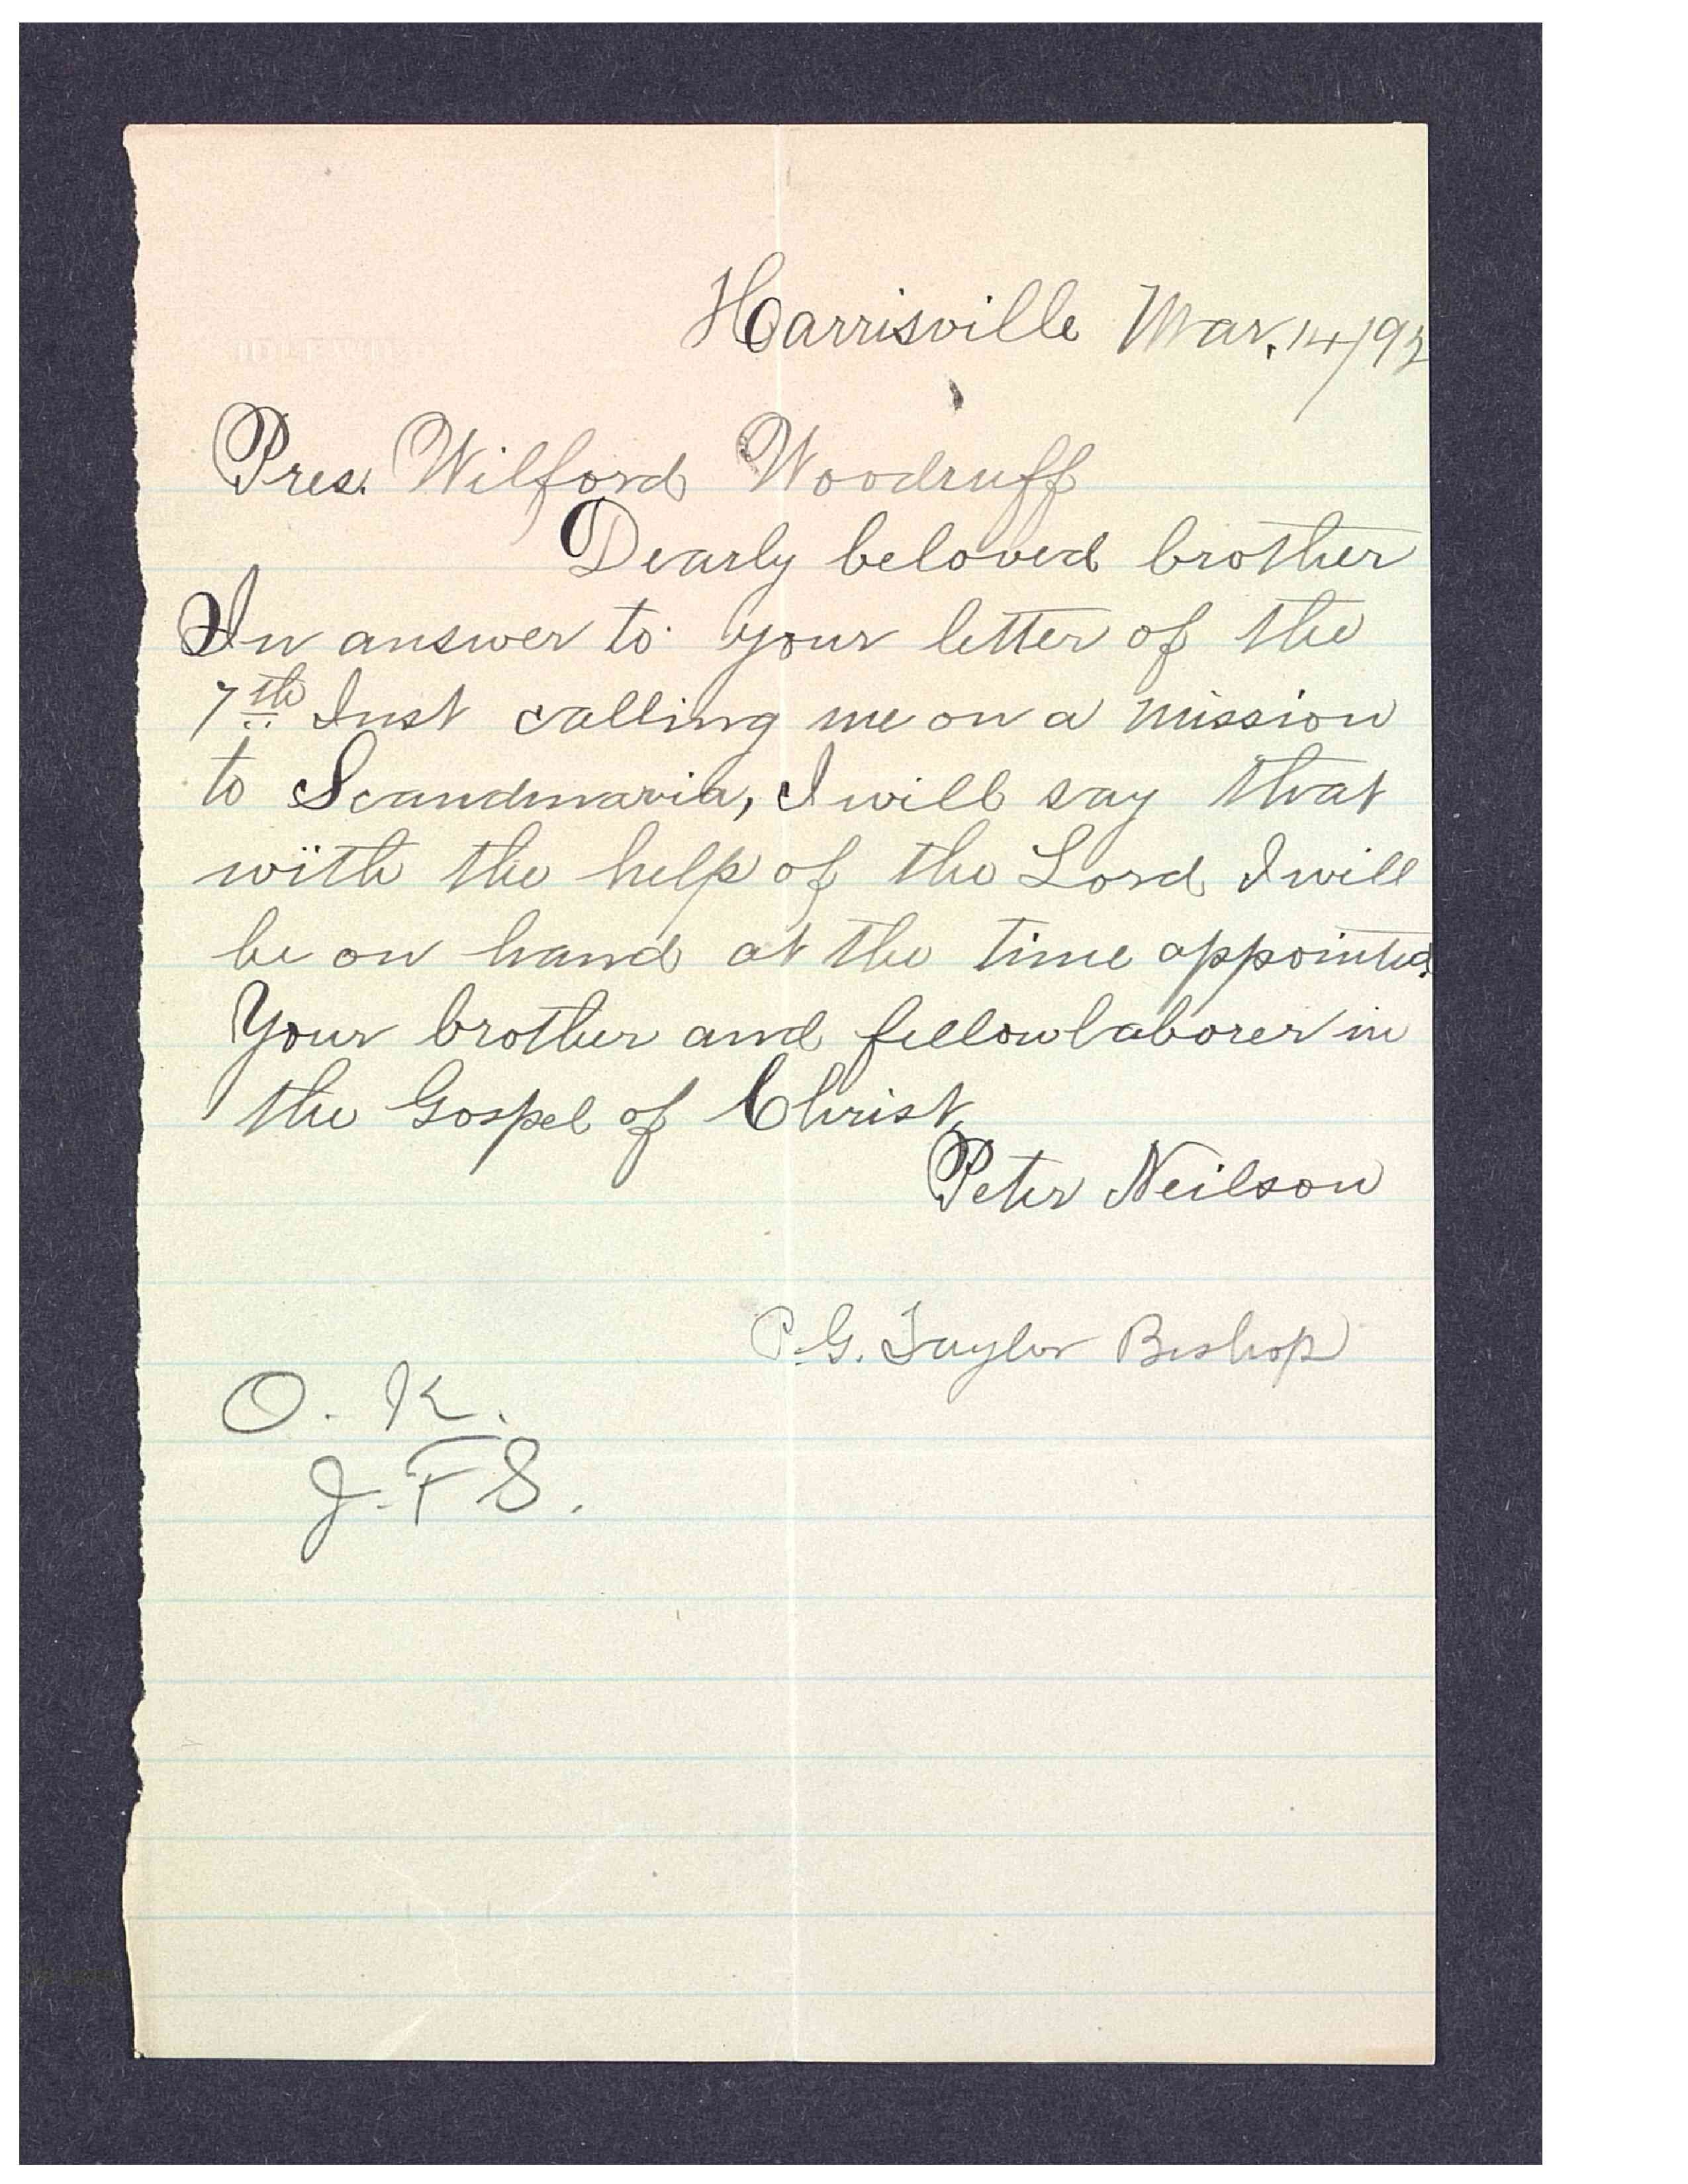 Harrisville Mar. 14/92
Pres. Wilford Woodruff
Dearly beloved brother
In answer to your letter of the
7th Inst calling me on a mission
to Scandinavia, I will say that
with the help of the Lord I will
be on hand at the time appointed.
Your brother and fellowlaborer in
the Gospel of Christ,
Peter Neilson
P. G. Taylor Bishop
O. K.
J. F. S.